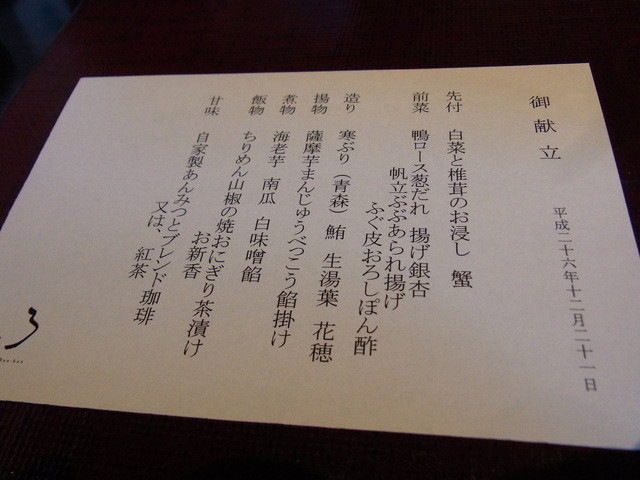 御献立
平成二十六年十二月二十一日
先付 白菜と椎茸のお浸し 蟹
前菜 鴨ロース葱だれ 揚げ銀杏
帆立ぶぶあられ揚げ
ふぐ皮おろしぽん酢
造り 寒ぶり（青森） 鮪 生湯葉 花穂
揚物 薩摩芋まんじゅうべっこう餡掛け
煮物 海老芋 南瓜 白味噌餡
飯物 ちりめん山椒の焼おにぎり茶漬け
お新香
甘味 自家製あんみつとブレンド珈琲
又は、紅茶
ろ